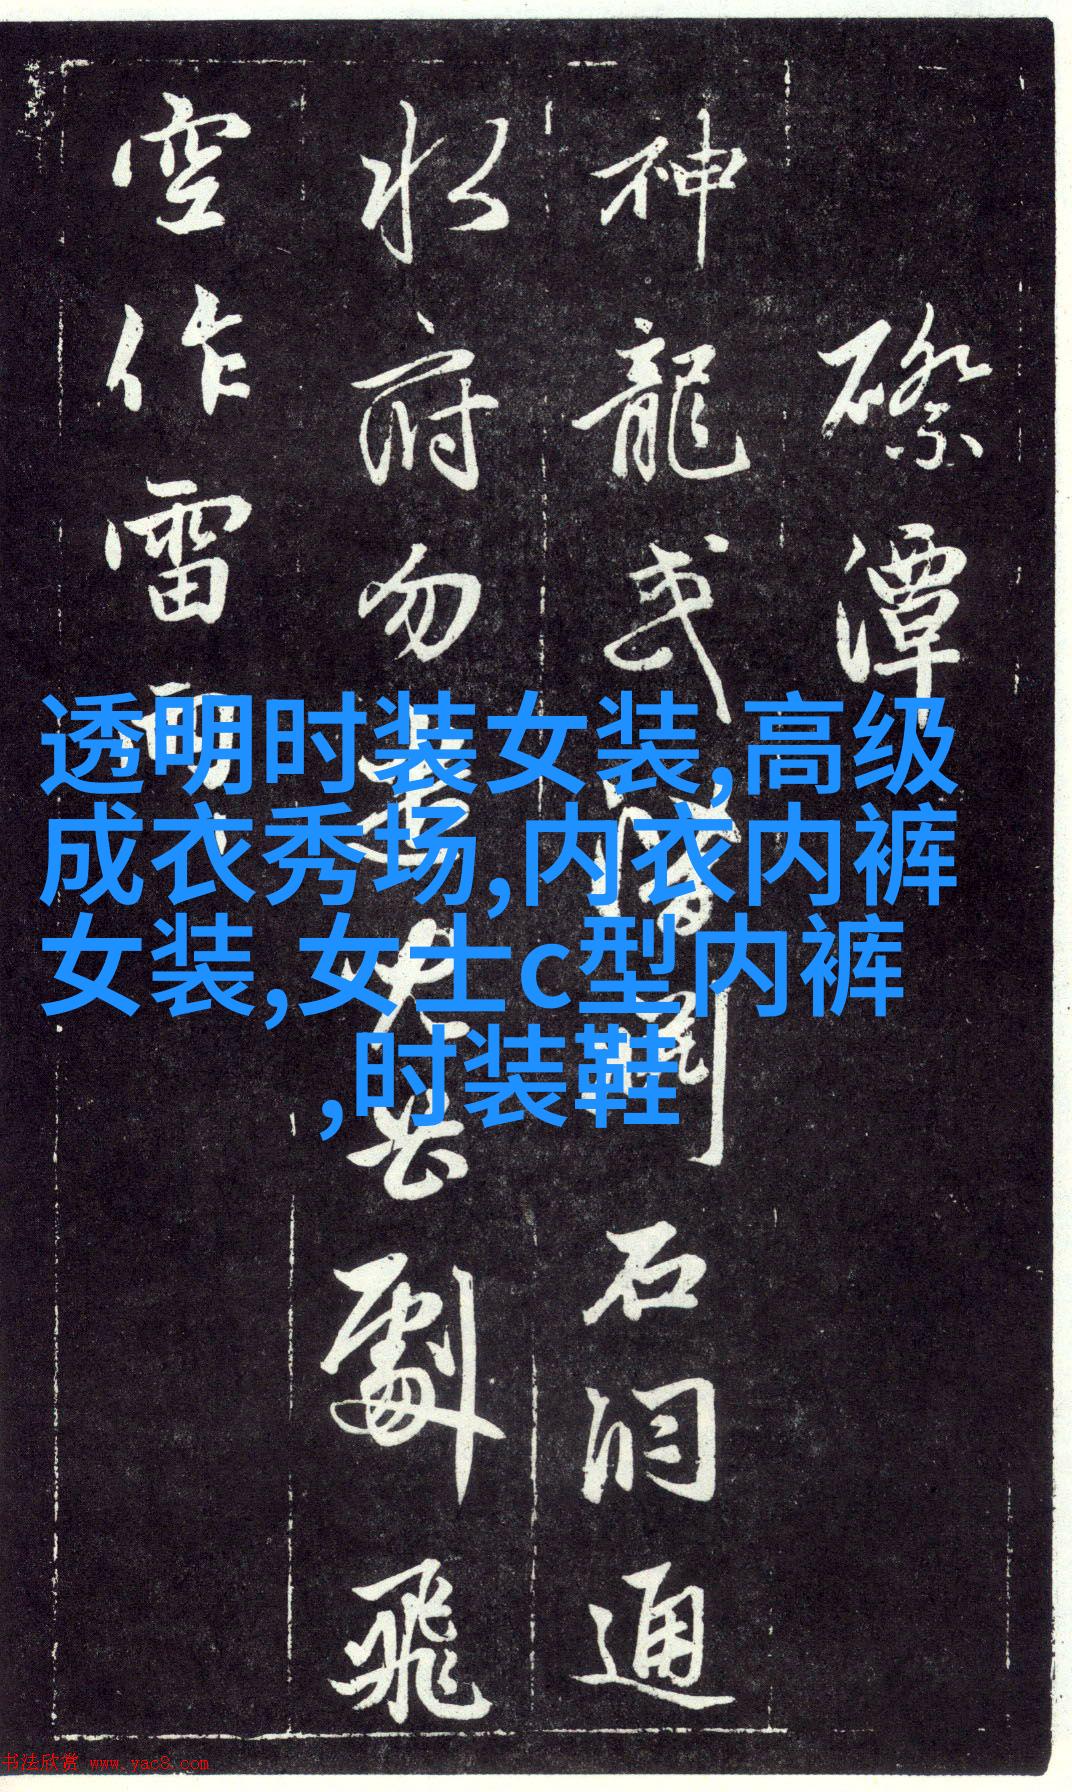 潭
神龍或潛石洞通
水府勿劚飛
空作雷雨
透明时装女装,高级
成衣秀场,内衣内裤
女装,女士c型内裤
,时装鞋
书法欣赏 www.yac8.com